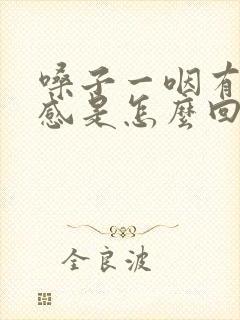 嗓子一咽有
感是怎麼回
全良波